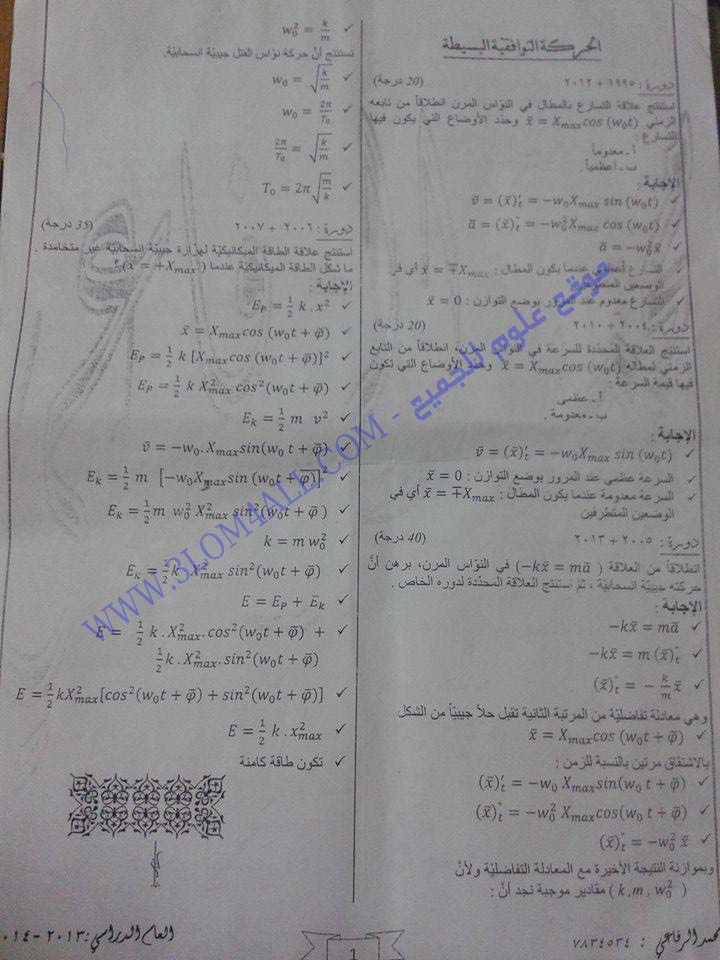 الحركة التوافقية البسيطة
دورة : ١٩٩٥ + ٢٠١٢ (20 درجة)
استنتج علاقة التسارع بالمطال في النوّاس المرن انطلاقاً من تابعه
الزمني x̄ = X_max cos (w₀t) وحدّد الأوضاع التي يكون فيها
التسارع :
أ - معدوما
ب - أعظمياً .
الإجابة :
✓ v̄ = (x̄)'ₜ = −w₀X_max sin (w₀t)
✓ ā = (x̄)''ₜ = −w₀² X_max cos (w₀t)
✓ ā = −w₀² x̄
✓ التسارع أعظمي عندما يكون المطال : x̄ = ∓X_max أي في
الوضعين المتطرفين
✓ التسارع معدوم عند المرور بوضع التوازن : x̄ = 0
دورة : ٢٠٠٤ + ٢٠١٠ (20 درجة)
استنتج العلاقة المحدّدة للسرعة في النوّاس المرن، انطلاقاً من التابع
الزمني لمطاله x̄ = X_max cos (w₀t) وحدّد الأوضاع التي تكون
فيها قيمة السرعة :
أ - عظمى
ب - معدومة .
الإجابة :
✓ v̄ = (x̄)'ₜ = −w₀X_max sin (w₀t)
✓ السرعة عظمى عند المرور بوضع التوازن : x̄ = 0
✓ السرعة معدومة عندما يكون المطال : x̄ = ∓X_max أي في
الوضعين المتطرفين
دورة : ٢٠٠٥ + ٢٠١٣ (40 درجة)
انطلاقاً من العلاقة (−kx̄ = mā) في النوّاس المرن، برهن أنّ
حركته جيبيّة انسحابيّة ، ثمّ استنتج العلاقة المحدّدة لدوره الخاص .
الإجابة :
✓ −kx̄ = mā
✓ −kx̄ = m (x̄)''ₜ
✓ (x̄)''ₜ = − k/m x̄
وهي معادلة تفاضليّة من المرتبة الثانية تقبل حلاً جيبيّاً من الشكل
✓ x̄ = X_max cos (w₀t + φ̄)
بالاشتقاق مرتين بالنسبة للزمن :
✓ (x̄)'ₜ = −w₀ X_max sin(w₀ t + φ̄)
✓ (x̄)''ₜ = −w₀² X_max cos(w₀ t + φ̄)
✓ (x̄)''ₜ = −w₀² x̄
وبموازنة النتيجة الأخيرة مع المعادلة التفاضليّة ولأنّ
( k , m , w₀² ) مقادير موجبة نجد أنّ :
✓ w₀² = k/m
نستنتج أنّ حركة نوّاس الفتل جيبيّة انسحابيّة.
✓ w₀ = √(k/m)
✓ w₀ = 2π/T₀
✓ 2π/T₀ = √(k/m)
✓ T₀ = 2π√(m/k)
دورة : ٢٠٠٦ + ٢٠٠٧ (35 درجة)
استنتج علاقة الطاقة الميكانيكيّة لهزازة جيبيّة انسحابيّة غير متخامدة .
ما شكل الطاقة الميكانيكيّة عندما (x = +X_max) ؟
الإجابة :
✓ E_P = ½ k . x²
✓ x̄ = X_max cos (w₀t + φ̄)
✓ E_P = ½ k [X_max cos (w₀t + φ̄)]²
✓ E_P = ½ k X²_max cos²(w₀t + φ̄)
✓ E_k = ½ m v²
✓ v̄ = −w₀. X_max sin(w₀ t + φ̄)
✓ E_k = ½ m [−w₀X_max sin (w₀t + φ̄)]²
✓ E_k = ½ m w₀² X²_max sin²(w₀t + φ̄ )
✓ k = m w₀²
✓ E_k = ½ k X²_max sin²(w₀t + φ̄)
✓ E = E_P + E_k
✓ E = ½ k . X²_max . cos²(w₀t + φ̄) +
½ k . X²_max . sin²(w₀t + φ̄)
✓ E = ½ kX²_max [cos²(w₀t + φ̄) + sin²(w₀t + φ̄)]
✓ E = ½ k . x²_max
✓ تكون طاقة كامنة
الرفاعي : ٧٨٣٤٥٣٤
1
العام الدراسي : ٢٠١٣ -
موقع علوم للجميع - WWW.3LOM4ALL.COM